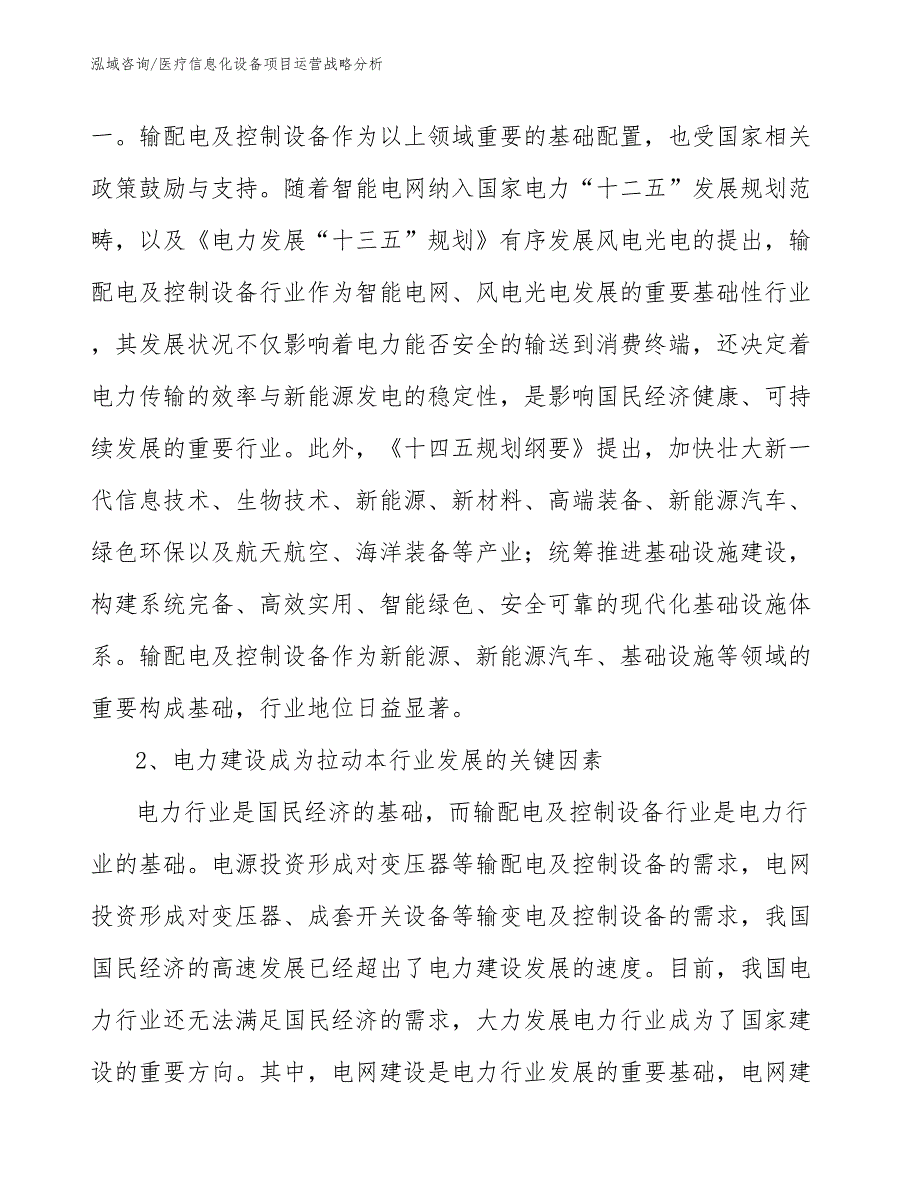 泓域咨询/医疗信息化设备项目运营战略分析
一。输配电及控制设备作为以上领域重要的基础配置，也受国家相关
政策鼓励与支持。随着智能电网纳入国家电力“十二五”发展规划范
畴，以及《电力发展“十三五”规划》有序发展风电光电的提出，输
配电及控制设备行业作为智能电网、风电光电发展的重要基础性行业
，其发展状况不仅影响着电力能否安全的输送到消费终端，还决定着
电力传输的效率与新能源发电的稳定性，是影响国民经济健康、可持
续发展的重要行业。此外，《十四五规划纲要》提出，加快壮大新一
代信息技术、生物技术、新能源、新材料、高端装备、新能源汽车、
绿色环保以及航天航空、海洋装备等产业；统筹推进基础设施建设，
构建系统完备、高效实用、智能绿色、安全可靠的现代化基础设施体
系。输配电及控制设备作为新能源、新能源汽车、基础设施等领域的
重要构成基础，行业地位日益显著。
2、电力建设成为拉动本行业发展的关键因素
电力行业是国民经济的基础，而输配电及控制设备行业是电力行
业的基础。电源投资形成对变压器等输配电及控制设备的需求，电网
投资形成对变压器、成套开关设备等输变电及控制设备的需求，我国
国民经济的高速发展已经超出了电力建设发展的速度。目前，我国电
力行业还无法满足国民经济的需求，大力发展电力行业成为了国家建
设的重要方向。其中，电网建设是电力行业发展的重要基础，电网建